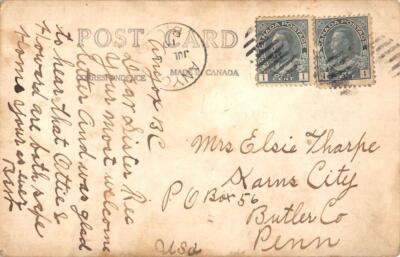 POST CARD
CORRESPONDENCE
MADE IN CANADA
CANADA POSTAGE
1 CENT 1
CANADA POSTAGE
1 CENT 1
JUL
BC
Dear Sister Rec
Your most welcome
letter And was glad
to hear that Ottie &
Howard are both safe
Home yours as ever
Bert
Mrs Elsie Tharpe
Karns City
PO Box 56
Butler Co
Penn
USA